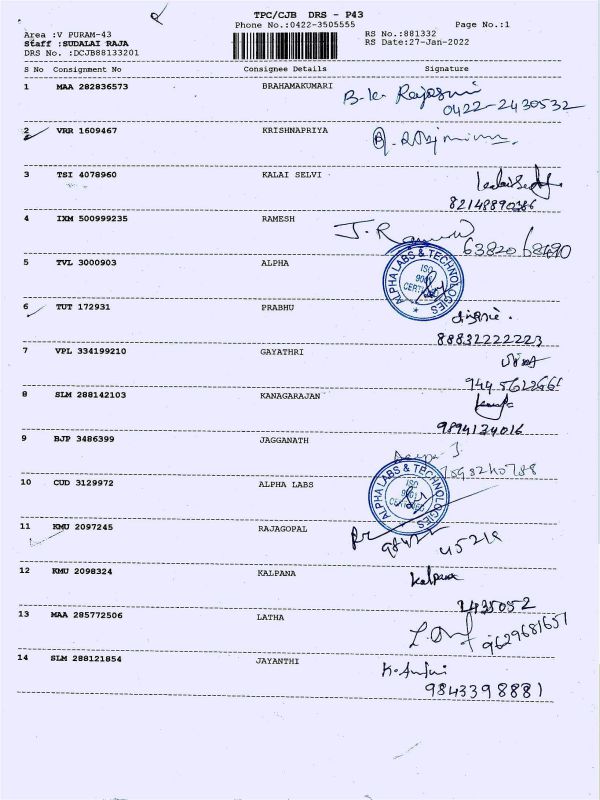 TPC/CJB DRS - P43
Phone No.:0422-3505555 Page No.:1
Area :V PURAM-43 RS No.:881332
Staff :SUDALAI RAJA RS Date:27-Jan-2022
DRS No. :DCJB88133201
S No Consignment No Consignee Details Signature
1 MAA 282836573 BRAHAMAKUMARI B.K. Rajasri
0422-2430532
2 VRR 1609467 KRISHNAPRIYA
3 TSI 4078960 KALAI SELVI
4 IXM 500999235 RAMESH J. Ramesh
5 TVL 3000903 ALPHA
ALPHA LABS & TECHNOLOGIES
ISO
9001
CERTIFIED
6 TUT 172931 PRABHU
88832222223
7 VPL 334199210 GAYATHRI
8 SLM 288142103 KANAGARAJAN
9894134016
9 BJP 3486399 JAGGANATH
10 CUD 3129972 ALPHA LABS
ALPHA LABS & TECHNOLOGIES
ISO
9001
CERTIFIED
11 KMU 2097245 RAJAGOPAL
12 KMU 2098324 KALPANA Kalpana
2435052
13 MAA 285772506 LATHA
9629681657
14 SLM 288121854 JAYANTHI
9843398881